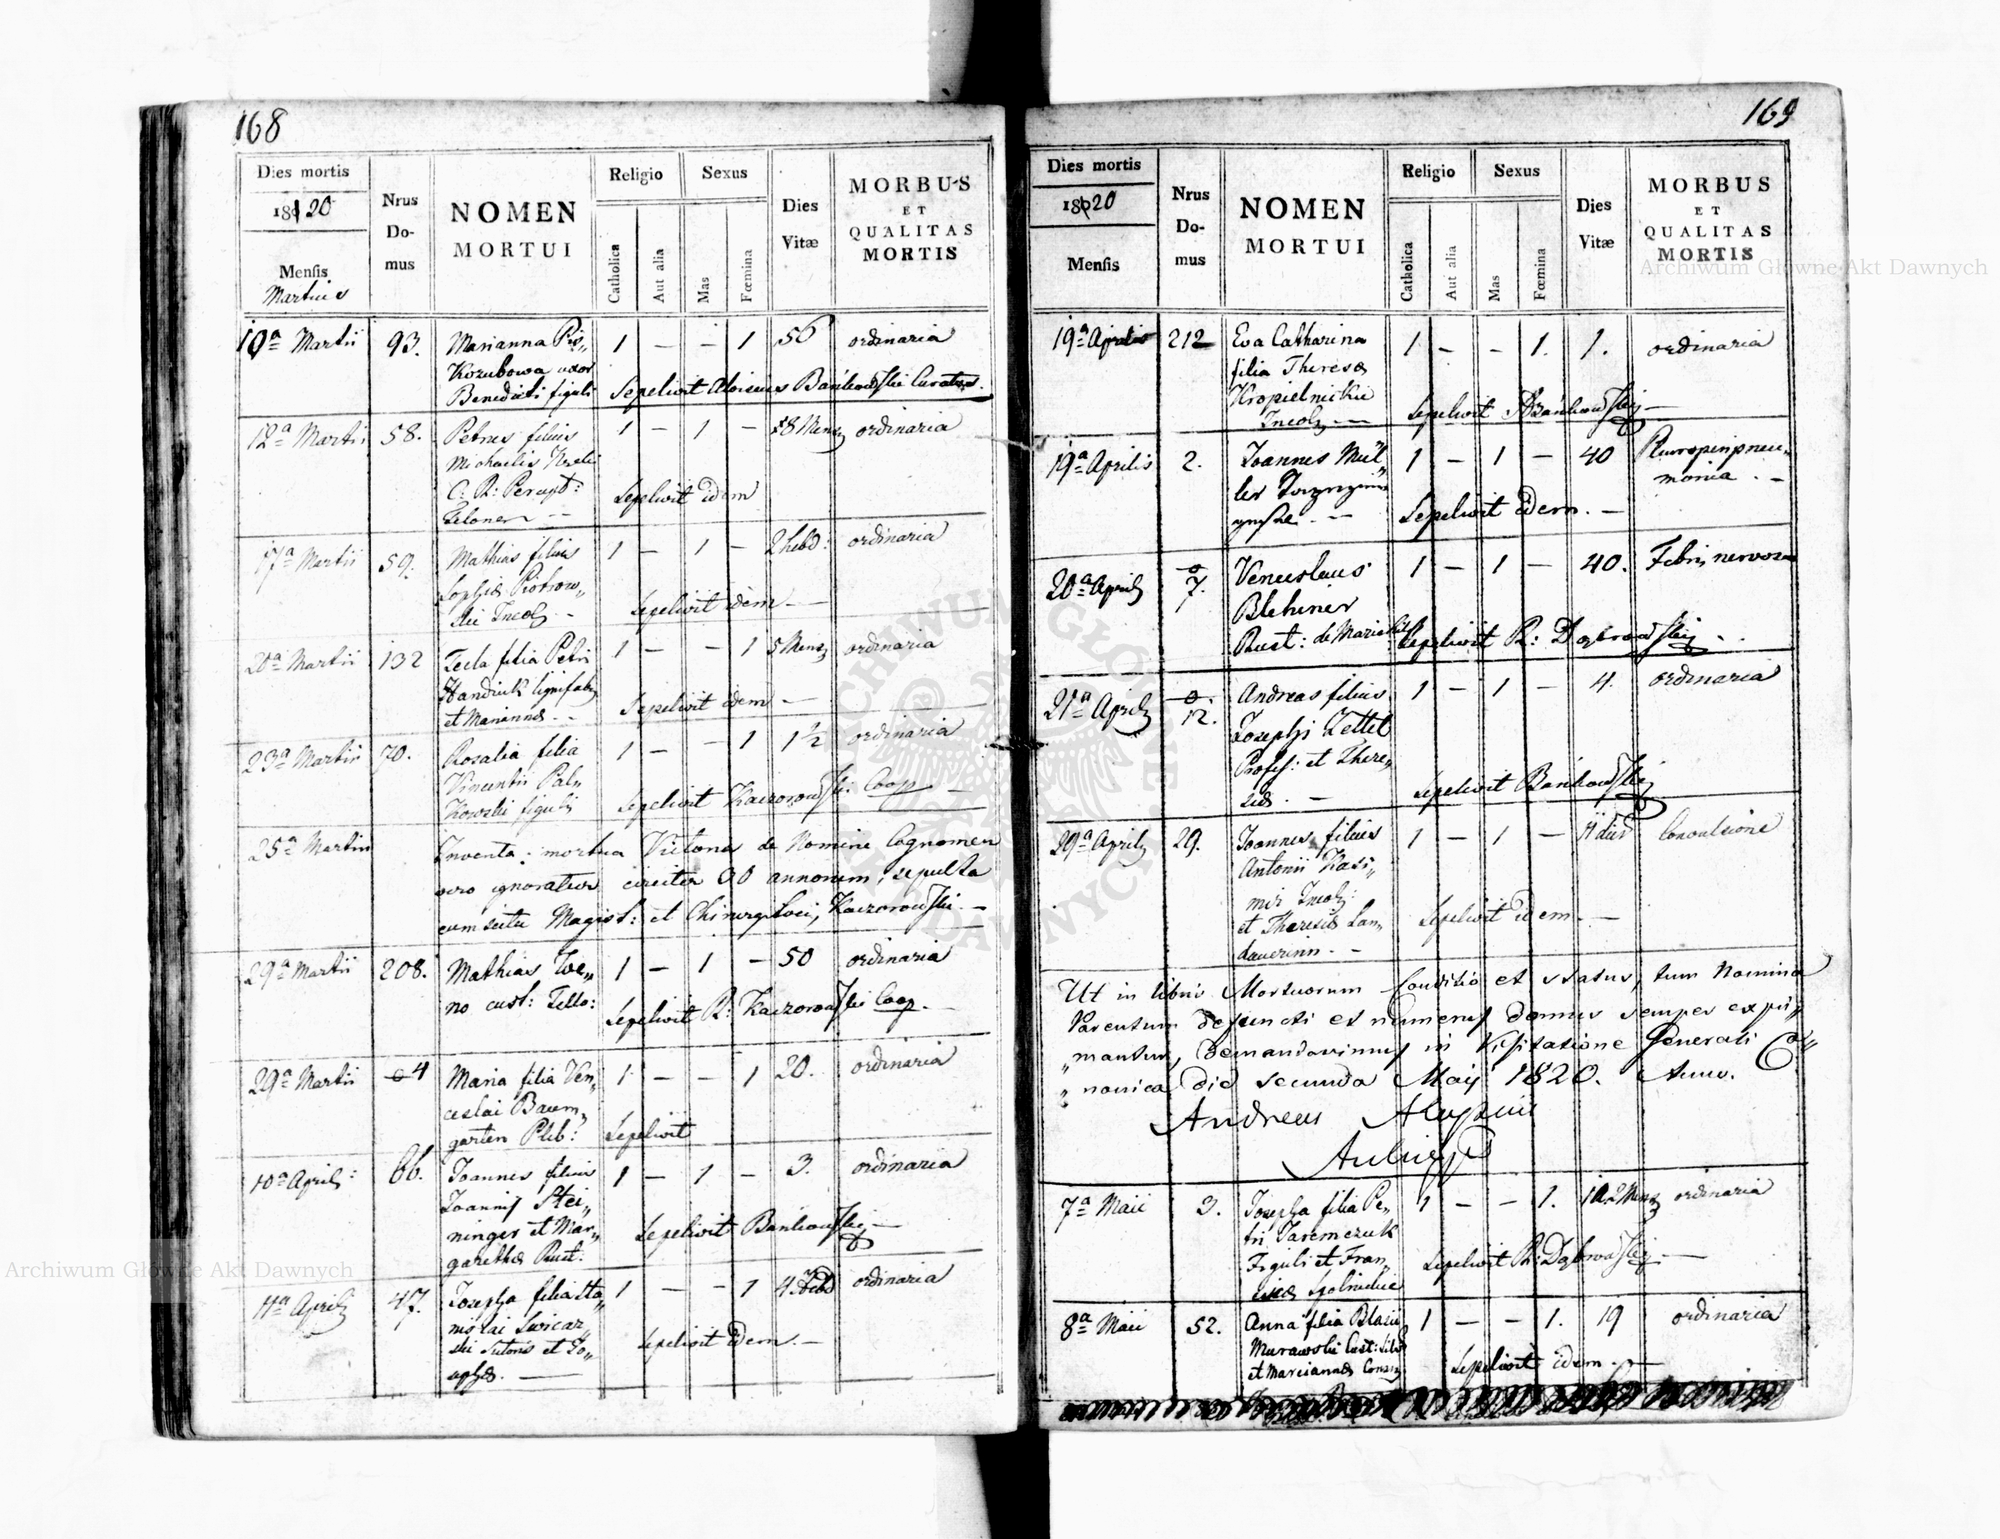 168
Dies mortis
1820
Mensis
Martius
Nrus
Do-
mus
NOMEN
MORTUI
Religio
Catholica
Aut alia
Sexus
Mas
Fœmina
Dies
Vitæ
MORBUS
ET
QUALITAS
MORTIS
10a Martii 93. Marianna 1 — — 1 56 ordinaria
Kozubowa uxor
Benedicti figuli Sepelivit Aloisius Bańkowski Curatus.
12a Martii 58. Petrus filius 1 — 1 — ordinaria
Michaelis
C: R: Sepelivit idem
17a Martii 59. Mathias filius 1 — 1 — 2 hebd: ordinaria
Sophiæ Piotrow„
ski Incolæ Sepelivit idem —
20a Martii 132 Tecla filia Petri 1 — — 1 5 Mens ordinaria
Handiuk lignifabri
et Mariannæ Sepelivit idem —
23a Martii 70. Rosalia filia 1 — — 1 1½ ordinaria
Vincentii Pal„
kowski figuli Sepelivit Kaczorowski Coop —
25a Martii Inventa mortua Victona de Nomine Cognomen
vero ignoratur circiter annorum, sepulta
cum scitu Magist: et Chirurgi Loci, Kaczorowski —
29a Martii 208. Mathias 1 — 1 — 50 ordinaria
no cust: Sepelivit R: Kaczorowski Coop.
29a Martii 4 Maria filia Ven„ 1 — — 1 20. ordinaria
ceslai Baum„
garten Pleb: Sepelivit
10a April: 66. Joannes filius 1 — 1 — 3. ordinaria
Joannis Stei„
ninger et Mar„ Sepelivit Bańkowski —
garethæ Rust.
11a Aprilis 47. Josepha filia Sta„ 1 — — 1 4 Hebd ordinaria
nislai
ski Sutoris et Jo„ Sepelivit idem. —
sephæ. —
169
Dies mortis
1820
Mensis
Nrus
Do-
mus
NOMEN
MORTUI
Religio
Catholica
Aut alia
Sexus
Mas
Fœmina
Dies
Vitæ
MORBUS
ET
QUALITAS
MORTIS
19a Aprilis 212 Eva Catharina 1 — — 1. 1. ordinaria
filia Theresæ
Kropielnickie Sepelivit Bańkowski —
Incolæ —
19a Aprilis 2. Joannes Mül„ 1 — 1 — 40 Pleuroperipneu„
ler monia. —
Sepelivit idem. —
20a Aprilis 7. Venceslaus 1 — 1 — 40. Febris nervosa
Blehiner
Rust: de Sepelivit R: Dąbrowski —
21a Aprilis 12. Andreas filius 1 — 1 — 4. ordinaria
Josephi Zettel
Profess: et There„
siæ. — Sepelivit Bańkowski
29a Aprilis 29. Joannes filius 1 — 1 — Convulsione
Antonii Kasi„
mir Incolæ
et Theresiæ Lan„ Sepelivit idem —
dauerinn. —
Ut in libris Mortuorum Conditio et status, tum Nomina
Parentum defuncti et numerus domus semper expri„
„mantur, demandavimus in Visitatione Generali Ca„
„nonica die secunda Maij 1820. Anno.
Andreas Aloysius
7a Maii 3. Josepha filia Pe„ 1 — — 1. ordinaria
tri Jaremczuk
Figuli et Fran„ Sepelivit R: Dąbrowski —
ciscæ
8a Maii 52. Anna filia Blasii 1 — — 1. 19 ordinaria
Murawski
et Mariannæ Sepelivit idem. —
Archiwum Główne Akt Dawnych
Archiwum Główne Akt Dawnych
ARCHIWUM GŁÓWNE AKT DAWNYCH